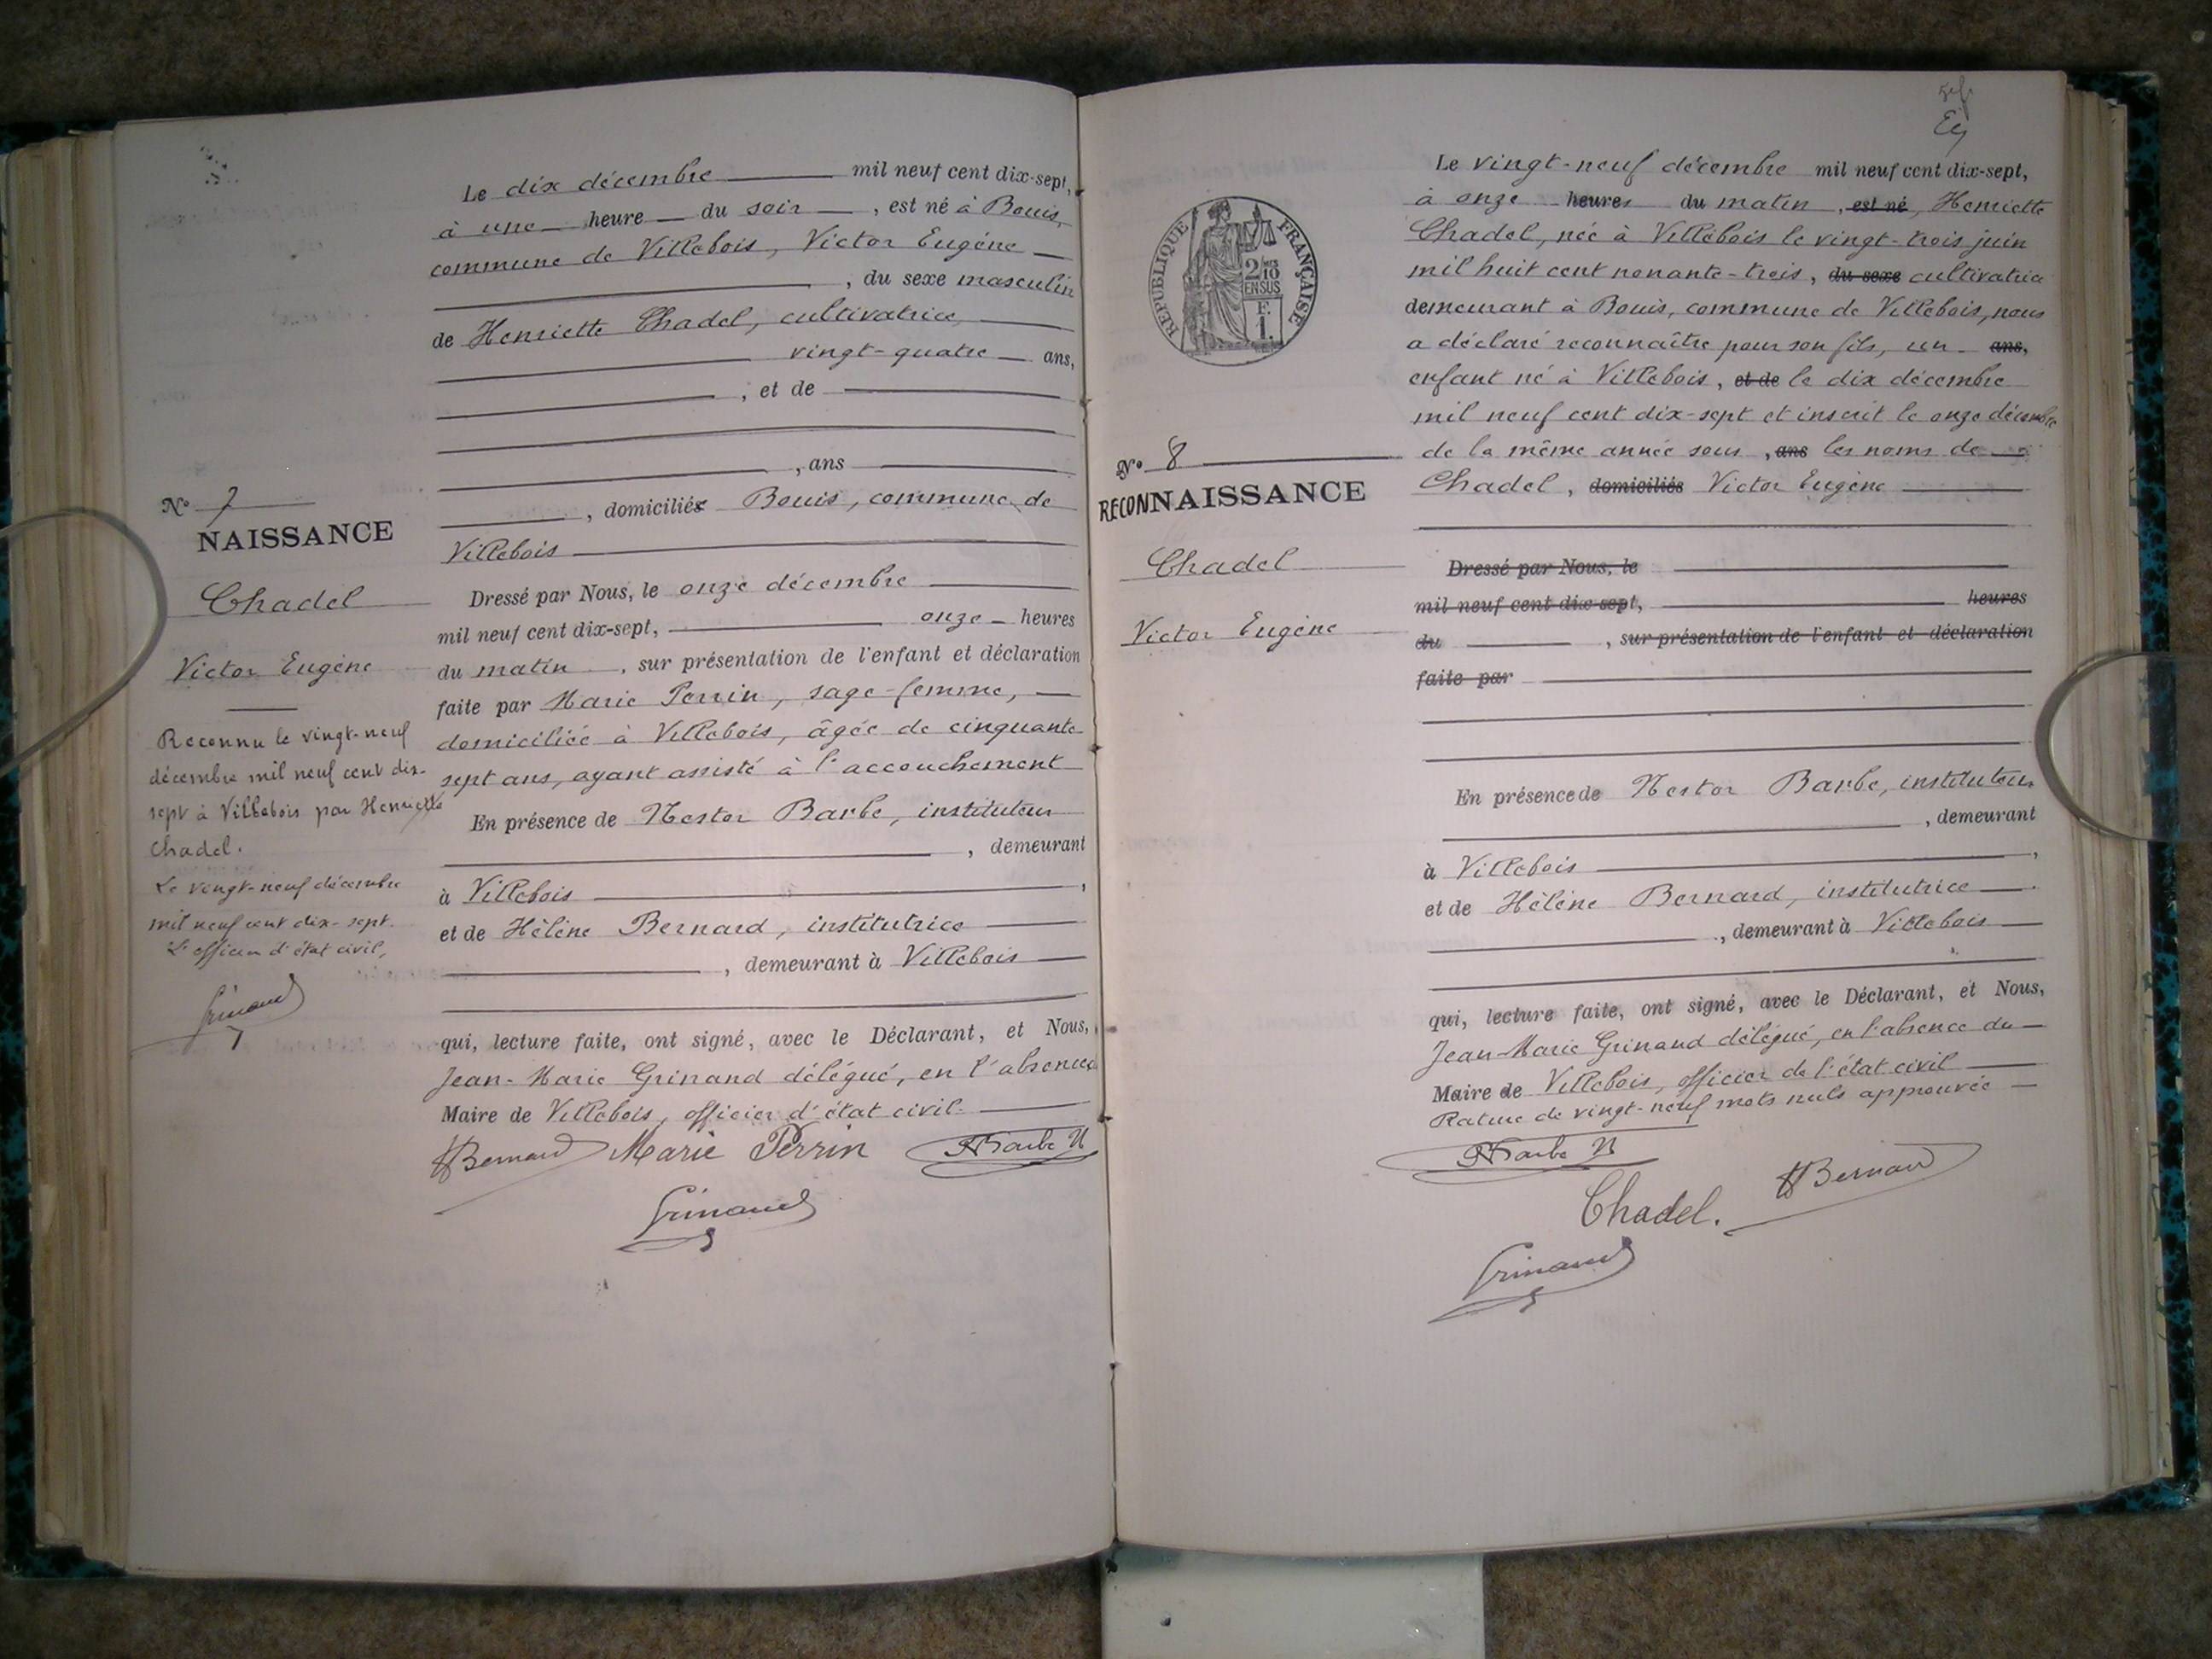 Le dix décembre mil neuf cent dix-sept,
à une heure du soir, est né à Bouis,
commune de Villebois, Victor Eugène
, du sexe masculin
de Henriette Chadel, cultivatrice
vingt-quatre ans,
, et de
, ans
, domiciliée Bouis, commune de
Villebois
Dressé par Nous, le onze décembre
mil neuf cent dix-sept, onze heures
du matin, sur présentation de l'enfant et déclaration
faite par Marie Perrin, sage-femme,
domiciliée à Villebois, âgée de cinquante
sept ans, ayant assisté à l'accouchement
En présence de Nestor Barbe, instituteur
, demeurant
à Villebois,
et de Hélène Bernard, institutrice
, demeurant à Villebois
qui, lecture faite, ont signé, avec le Déclarant, et Nous,
Jean-Marie Grinand délégué, en l'absence
Maire de Villebois, officier d'état civil.
HBernard Marie Perrin NBarbe
Grinand
N° 7
NAISSANCE
Chadel
Victor Eugène
Reconnu le vingt-neuf
décembre mil neuf cent dix-
sept à Villebois par Henriette
Chadel.
Le vingt-neuf décembre
mil neuf cent dix-sept.
L'officier d'état civil,
Grinand
Le vingt-neuf décembre mil neuf cent dix-sept,
à onze heures du matin, est né, Henriette
Chadel, née à Villebois le vingt-trois juin
mil huit cent nonante-trois, du sexe cultivatrice
demeurant à Bouis, commune de Villebois, nous
a déclaré reconnaître pour son fils, un ans,
enfant né à Villebois, et de le dix décembre
mil neuf cent dix-sept et inscrit le onze décembre
de la même année sous, ans les noms de
Chadel, domiciliés Victor Eugène
Dressé par Nous, le
mil neuf cent dix-sept, heures
du , sur présentation de l'enfant et déclaration
faite par
En présence de Nestor Barbe, instituteur
, demeurant
à Villebois,
et de Hélène Bernard, institutrice
, demeurant à Villebois
qui, lecture faite, ont signé, avec le Déclarant, et Nous,
Jean-Marie Grinand délégué, en l'absence du
Maire de Villebois, officier de l'état civil
Rature de vingt-neuf mots nuls approuvée
NBarbe
HBernard
Chadel.
Grinand
RÉPUBLIQUE FRANÇAISE
2/10
EN SUS
F.
1.
N° 8
RECONNAISSANCE
Chadel
Victor Eugène